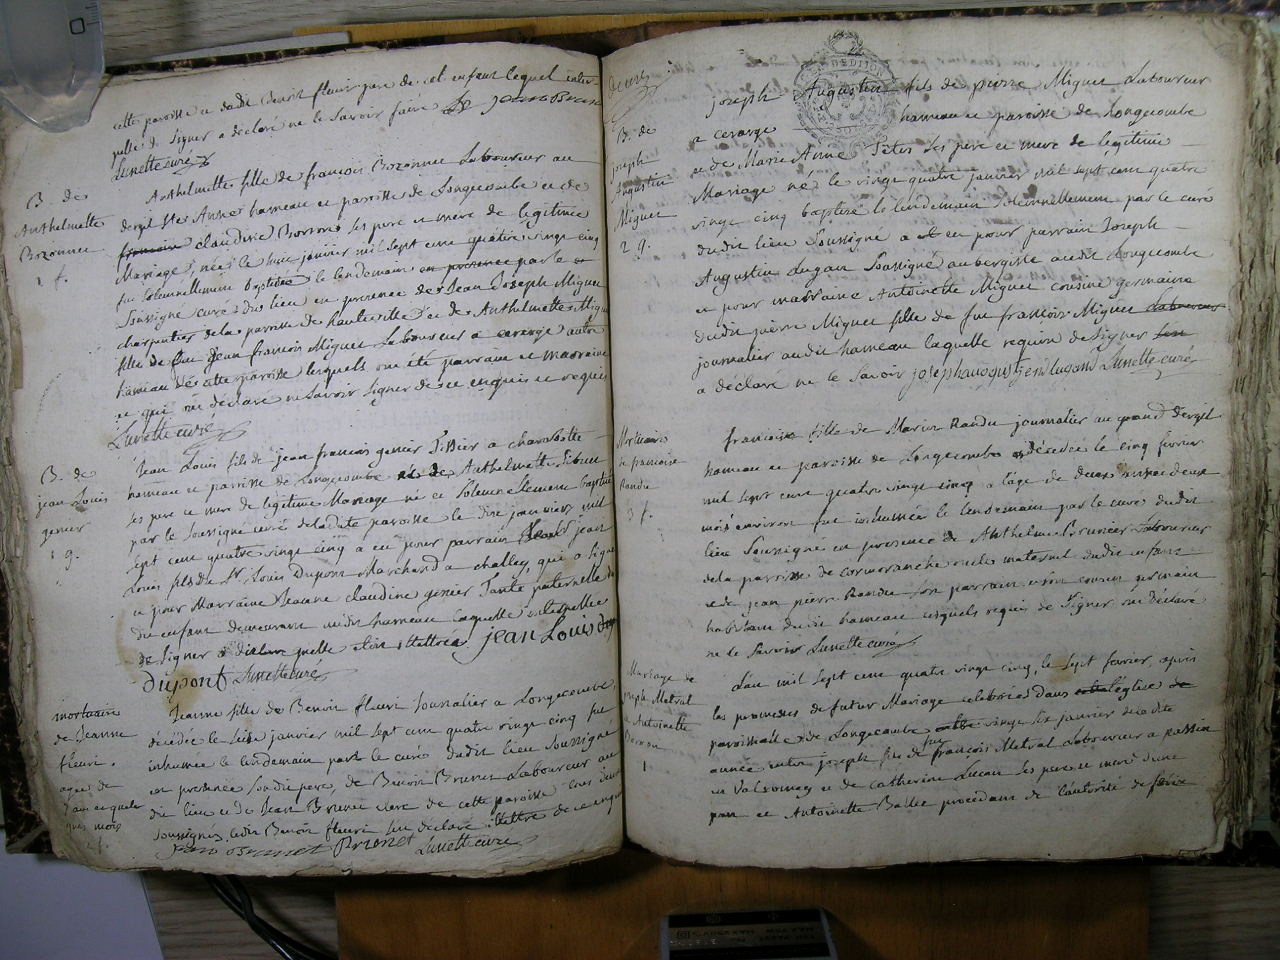 cette paroisse et dudit Benoit fleuri pere de cet enfant lequel
de Signer a déclaré ne le Savoir faire Jean Brun
Lunette curé
B. de
Anthelmette
Bozonnet
1 f.
Anthelmette fille de françois Bozonnet Laboureur au
dergil Ste Anne hameau et parroisse de Longecombe et de
claudine Borron Ses pere et mere de légitime
Mariage, née le huit janvier mil Sept cent quatre vingt cinq
fut Solennellement baptisée le lendemain en presence par le
Soussigné curé du dit lieu en presence de Jean Joseph Miguet
charpentier de la parroisse de hauteville et de Anthelmette Miguet
fille de feu Jean françois Miguet Laboureur a cerarge autre
hameau de cette parroisse lesquels ont été parrain et marraine
et qui ont déclaré ne Savoir Signer de ce enquis et requis
Lunette curé
B. de
jean Louis
genier
1 g.
Jean Louis fils de jean francois genier Tissier a charabotte
hameau et parroisse de Longecombe et de Anthelmette
Ses pere et mere de legitime Mariage né et Solennellement baptisé
par le Soussigné curé de ladite paroisse le dix janvier mil
Sept cent quatre vingt cinq a eu pour parrain jean
Louis fils de Sr. Louis Dupont Marchand a challey qui a Signé
et pour Marraine Jeanne claudine genier Tante paternelle
du enfant demeurant audit hameau laquelle
de Signer a déclaré jean Louis
dupont Lunette curé
mortuaire
de Jeanne
fleuri.
agée de
2 ans et quel
ques mois
2 f.
Jeanne fille de Benoit fleuri Journalier a Longecombe,
décédée le Seize janvier mil Sept cent quatre vingt cinq fut
inhumée le lendemain par le curé dudit lieu Soussigné
en presence Sondit pere, de Benoit Brunet Laboureur au
dit lieu et de Jean Brunet clerc de cette paroisse
Soussignés, ledit Benoit fleuri de ce enquis
jean Brunet Brunet Lunette curé
B. de
joseph
Augustin
Miguet
2 g.
joseph Augustin fils de pierre Miguet Laboureur
a cerarge hameau et paroisse de Longecombe
et de Marie Anne Ses pere et mere de legitime
Mariage né le vingt quatre janvier mil Sept cent quatre
vingt cinq baptisé le lendemain Solennellement par le curé
dudit lieu Soussigné a eu pour parrain Joseph
Augustin Lugan Soussigné aubergiste audit Longecombe
et pour marraine Antoinette Miguet cousine germaine
dudit pierre Miguet fille de feu francois Miguet laboureur
journalier audit hameau laquelle requise de Signer
a déclaré ne le Savoir joseph augustin lugand Lunette curé
Mortuaire
de francoise
Randu
3 f.
francoise fille de Marin Randu journalier au grand dergil
hameau et paroisse de Longecombe décédée le cinq fevrier
mil Sept cent quatre vingt cinq a l'age de deux
mois environ fut inhumée le lendemain par le curé dudit
lieu Soussigné en presence de Anthelme Laboureur
de la paroisse de cormoranche oncle maternel dudit enfant
et de jean pierre Randu Son parrain et Son cousin germain
habitant dudit hameau lesquels requis de Signer ont déclaré
ne le Savoir Lunette curé
Mariage de
joseph Metral
et Antoinette
Borron
1
L'an mil Sept cent quatre vingt cinq, le Sept fevrier, après
les promesses de futur Mariage celebrées dans l'église
paroissialle de Longecombe vingt Six janvier de ladite
année entre joseph fils de feu francois Metral Laboureur a passin
en Valromey et de Catherine Lucan Ses pere et mere d'une
part et Antoinette Ballet procedant de l'autorité de